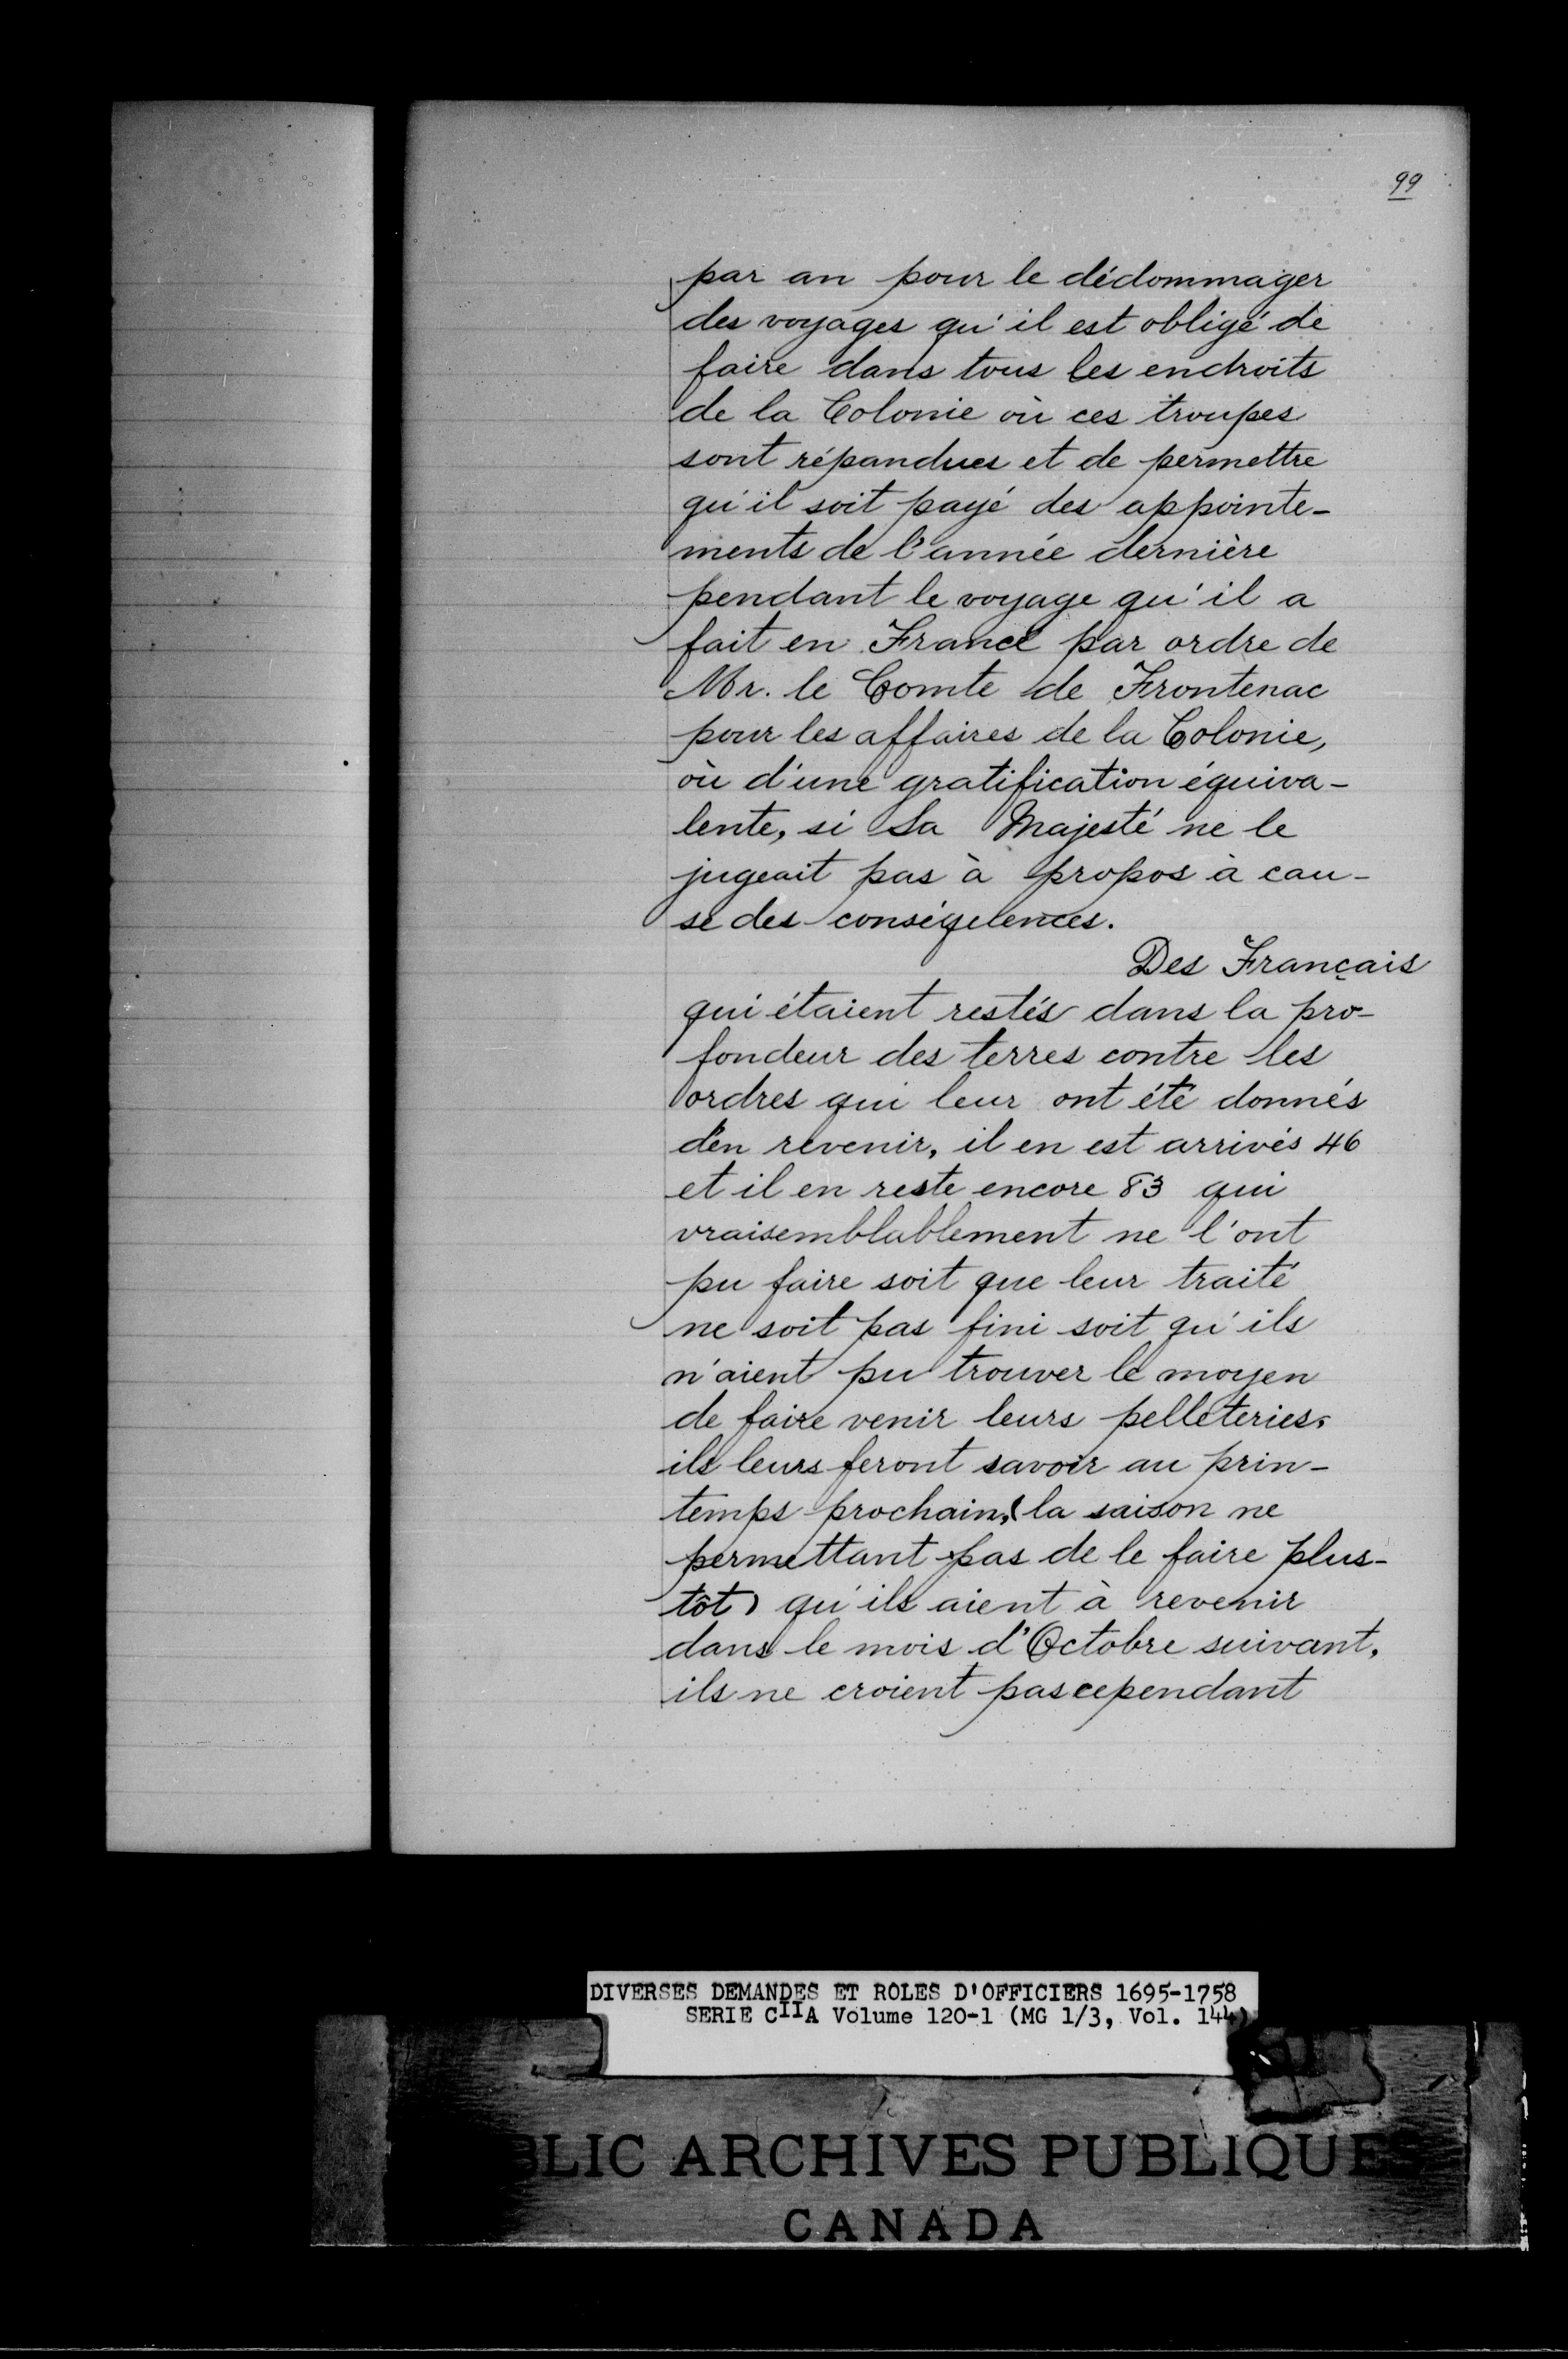 99
par an pour le dédommager
des voyages qu'il est obligé de
faire dans tous les endroits
de la Colonie où ces troupes
sont répandues et de permettre
qu'il soit payé des appointe-
ments de l'année dernière
pendant le voyage qu'il a
fait en France par ordre de
Mr. le Comte de Frontenac
pour les affaires de la Colonie,
où d'une gratification équiva-
lente, si Sa Majesté ne le
jugeait pas à propos à cau-
se des conséquences.
Des Français
qui étaient restés dans la pro-
fondeur des terres contre les
ordres qui leur ont été donnés
d'en revenir, il en est arrivés 46
et il en reste encore 83 qui
vraisemblablement ne l'ont
pu faire soit que leur traité
ne soit pas fini soit qu'ils
n'aient pu trouver le moyen
de faire venir leurs pelleteries,
ils leurs feront savoir au prin-
temps prochain, (la saison ne
permettant pas de le faire plus-
tôt) qu'ils aient à revenir
dans le mois d'Octobre suivant,
ils ne croient pas cependant
DIVERSES DEMANDES ET ROLES D'OFFICIERS 1695-1758
SERIE CIIA Volume 120-1 (MG 1/3, Vol. 144)
BLIC ARCHIVES PUBLIQUES
CANADA